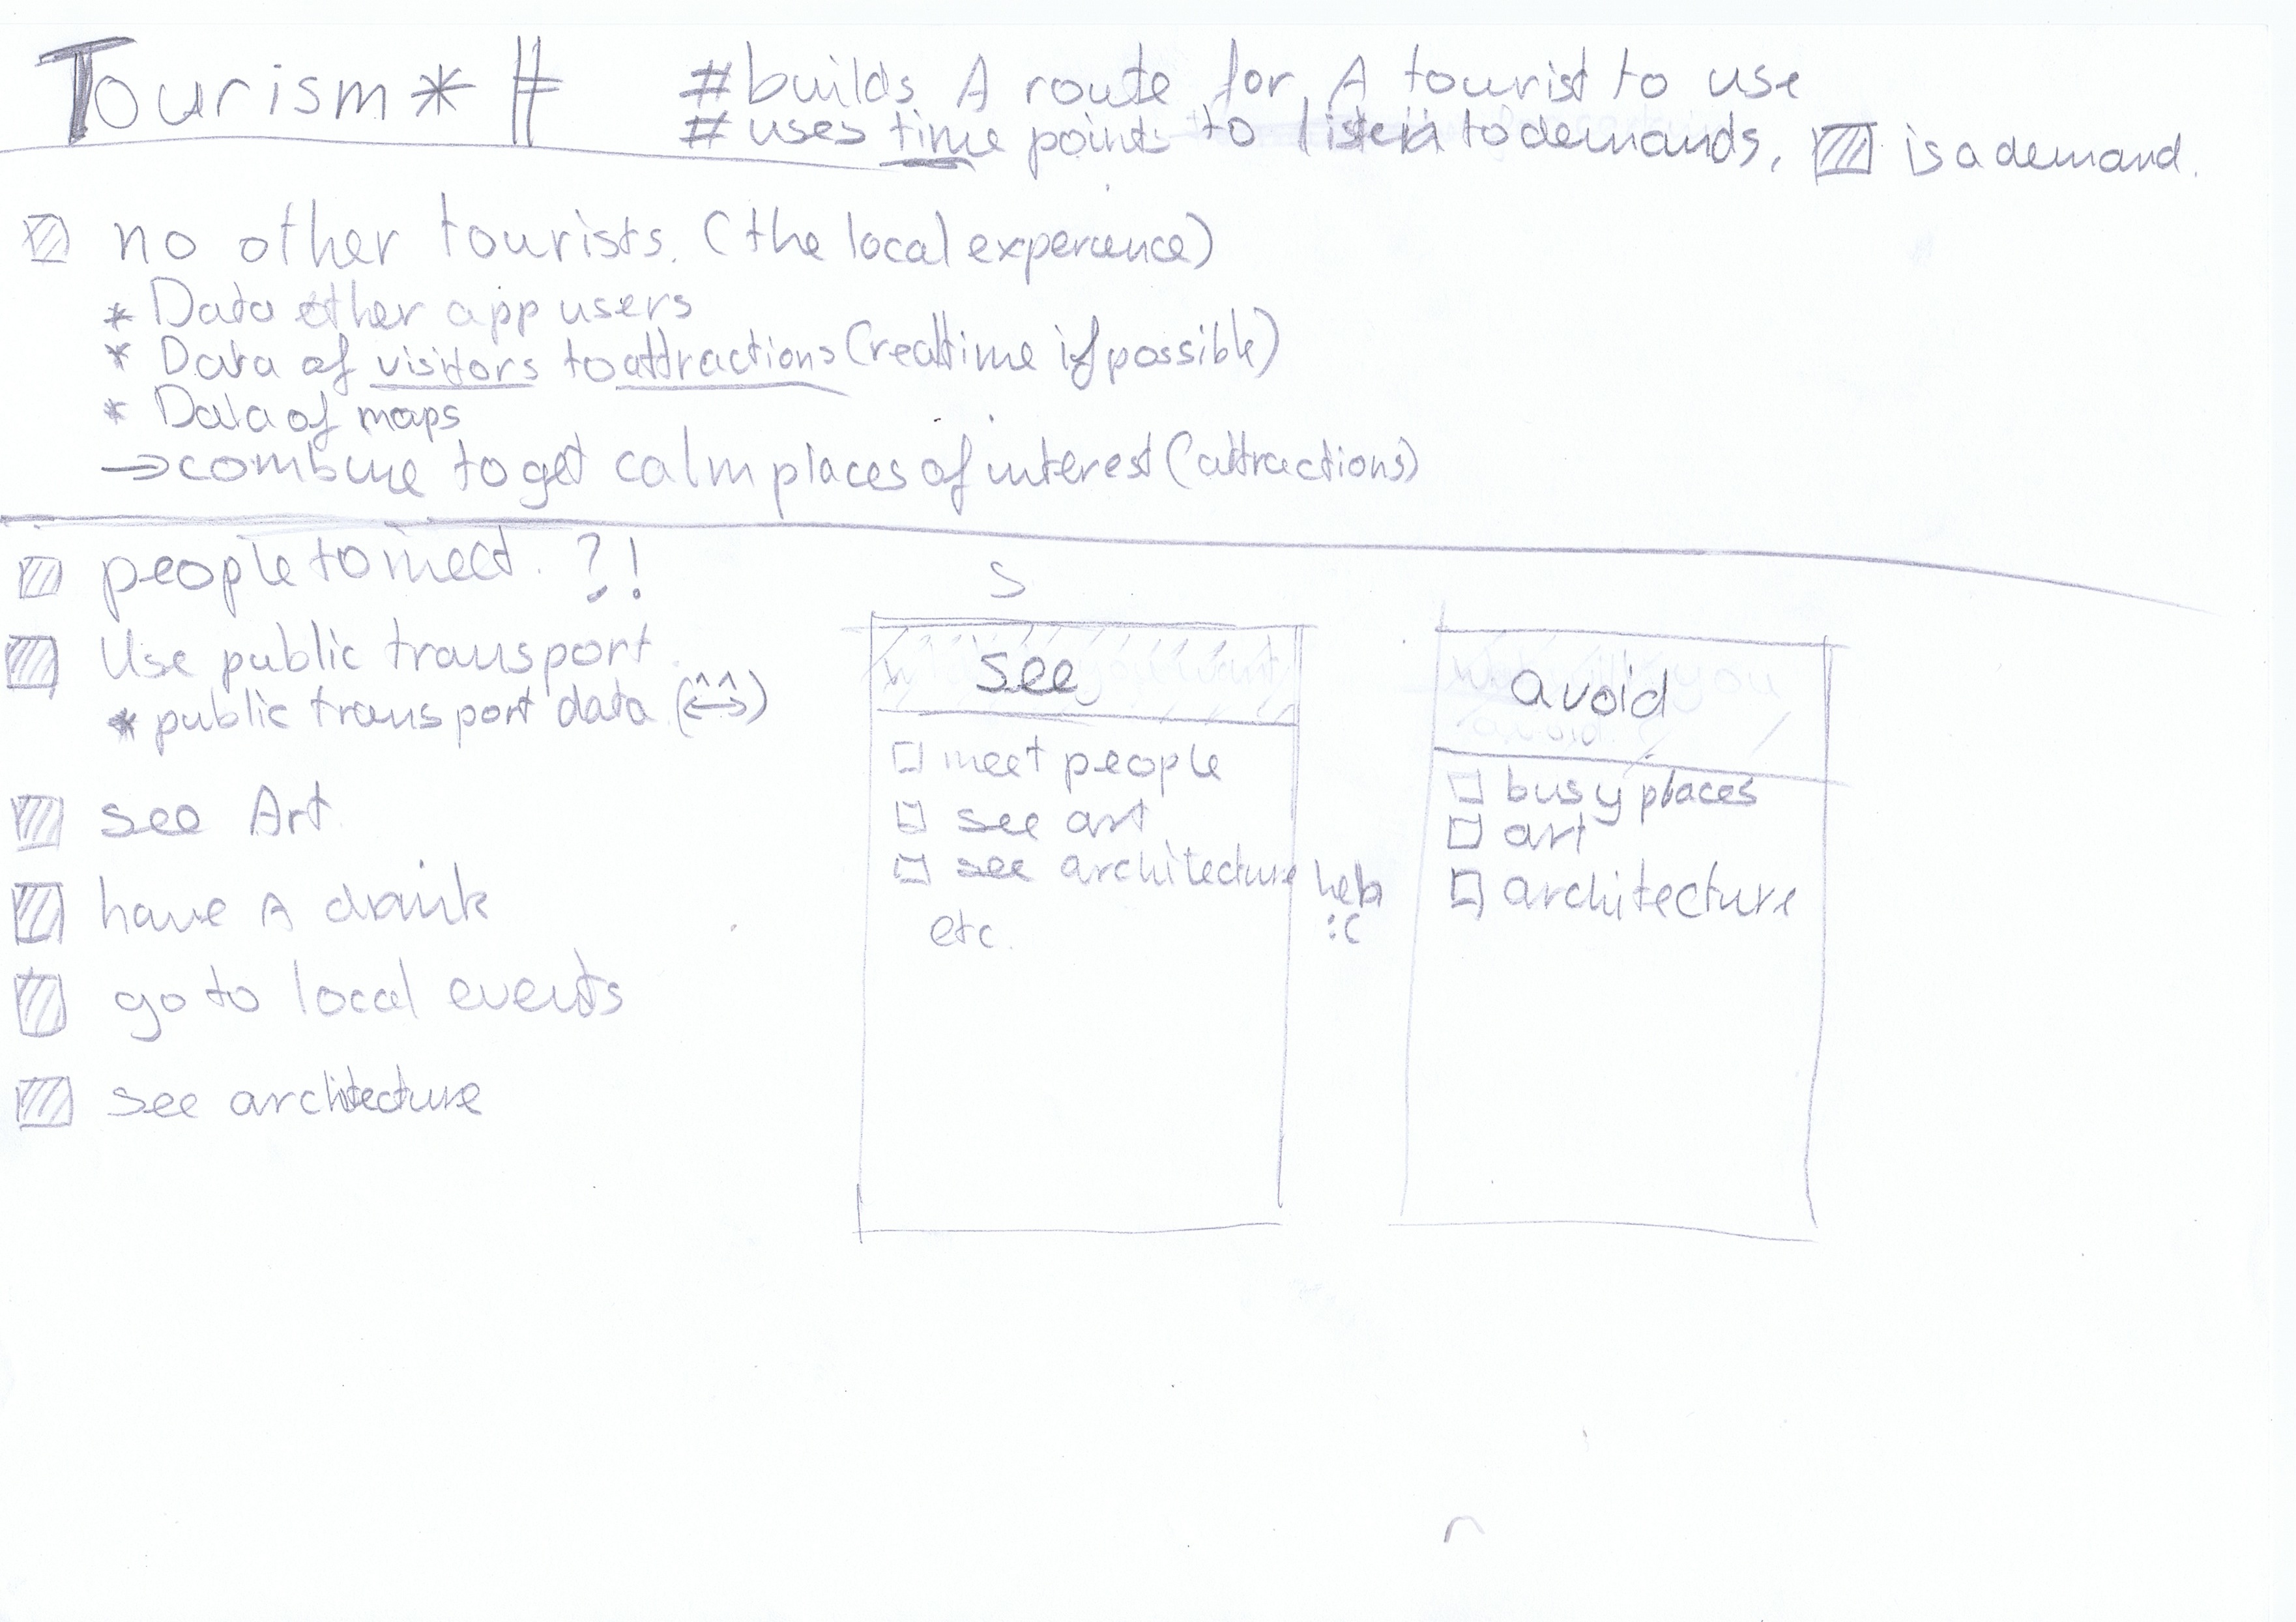 Tourism * #
# builds A route for A tourist to use
# uses time points to listen to demands, is a demand.
no other tourists. (the local experience)
* Data other app users
* Data of visitors to attractions (realtime if possible)
* Data of maps
→ combine to get calm places of interest (attractions)
people to meet. ?!
Use public transport.
* public transport data
see Art
have A drink
go to local events
see architecture
S
see
meet people
see art
see architecture
etc.
:c
avoid
busy places
art
architecture